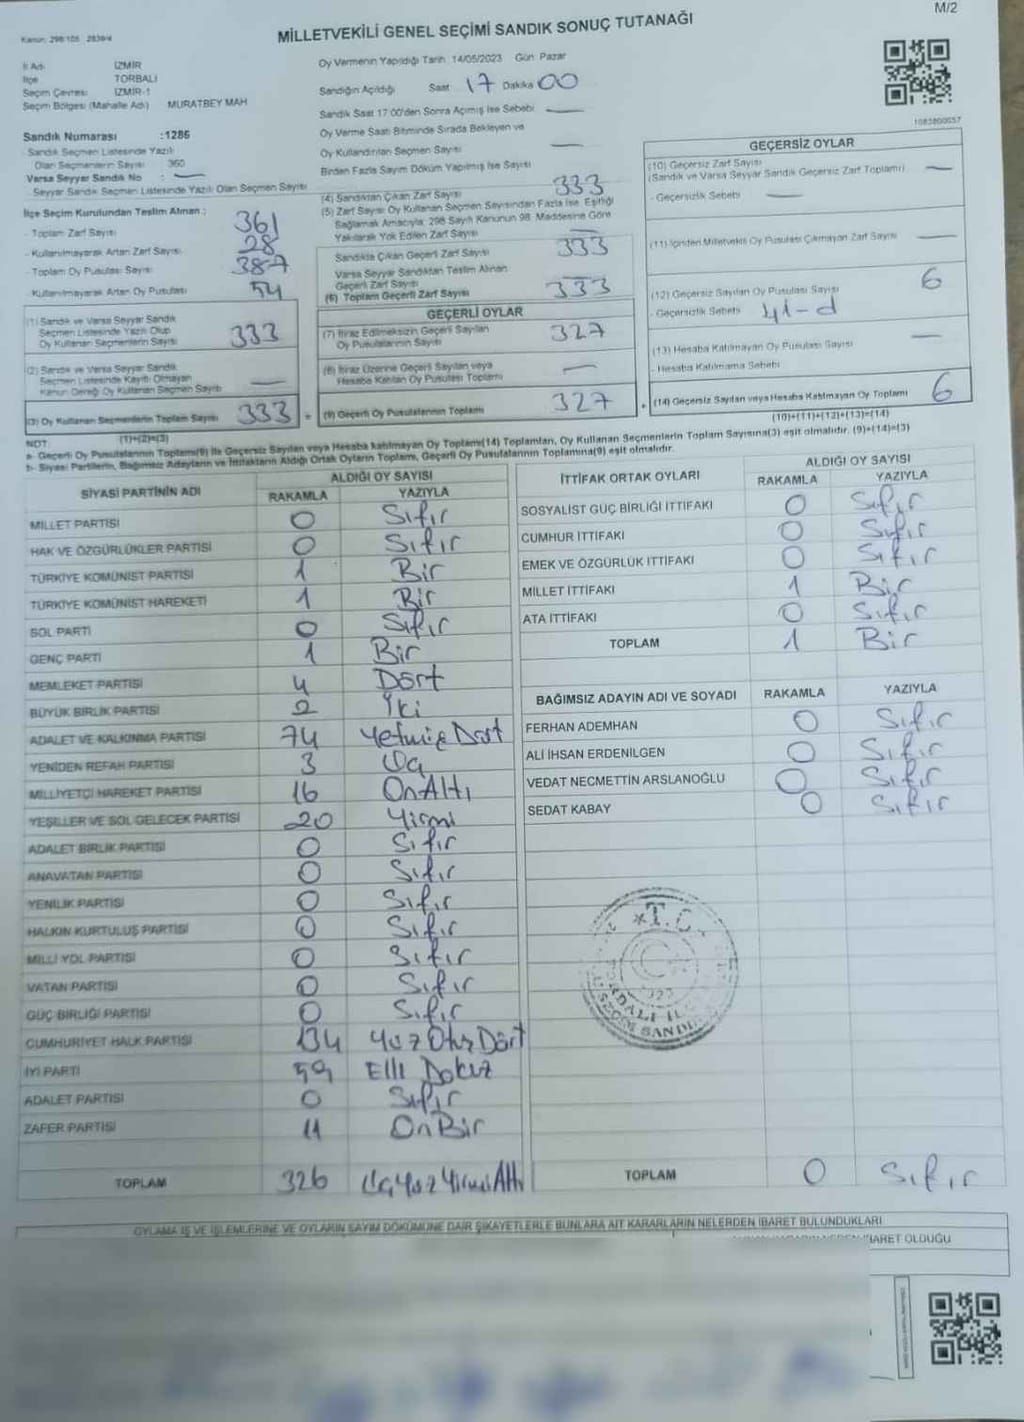 M/2
Kanun: 298/105 2839/4
MİLLETVEKİLİ GENEL SEÇİMİ SANDIK SONUÇ TUTANAĞI
İl Adı : İZMİR
İlçe : TORBALI
Seçim Çevresi : İZMİR-1
Seçim Bölgesi (Mahalle Adı) MURATBEY MAH
Sandık Numarası :1286
- Sandık Seçmen Listesinde Yazılı
Olan Seçmenlerin Sayısı 360
Varsa Seyyar Sandık No : —
Seyyar Sandık Seçmen Listesinde Yazılı Olan Seçmen Sayısı
İlçe Seçim Kurulundan Teslim Alınan :
- Toplam Zarf Sayısı 361
- Kullanılmayarak Artan Zarf Sayısı 28
- Toplam Oy Pusulası Sayısı 387
- Kullanılmayarak Artan Oy Pusulası 54
(1) Sandık ve Varsa Seyyar Sandık
Seçmen Listesinde Yazılı Olup
Oy Kullanan Seçmenlerin Sayısı 333
(2) Sandık ve Varsa Seyyar Sandık
Seçmen Listesinde Kayıtlı Olmayan
Kanun Gereği Oy Kullanan Seçmen Sayısı —
(3) Oy Kullanan Seçmenlerin Toplam Sayısı 333
(1)+(2)=(3)
Oy Vermenin Yapıldığı Tarih: 14/05/2023 Gün: Pazar
Sandığın Açıldığı Saat 17 Dakika 00
Sandık Saat 17:00'den Sonra Açımış İse Sebebi —
Oy Verme Saati Bitiminde Sırada Bekleyen ve
Oy Kullandırılan Seçmen Sayısı —
Birden Fazla Sayım Döküm Yapılmış İse Sayısı
(4) Sandıktan Çıkan Zarf Sayısı 333
(5) Zarf Sayısı Oy Kullanan Seçmen Sayısından Fazla İse, Eşitliği
Sağlamak Amacıyla, 298 Sayılı Kanunun 98. Maddesine Göre
Yakılarak Yok Edilen Zarf Sayısı —
Sandıkta Çıkan Geçerli Zarf Sayısı 333
Varsa Seyyar Sandıktan Teslim Alınan
Geçerli Zarf Sayısı —
(6) Toplam Geçerli Zarf Sayısı 333
GEÇERLİ OYLAR
(7) İtiraz Edilmeksizin Geçerli Sayılan
Oy Pusulalarının Sayısı 327
(8) İtiraz Üzerine Geçerli Sayılan veya
Hesaba Katılan Oy Pusulası Toplamı —
(9) Geçerli Oy Pusulalarının Toplamı 327
1083800057
GEÇERSİZ OYLAR
(10) Geçersiz Zarf Sayısı
(Sandık ve Varsa Seyyar Sandık Geçersiz Zarf Toplamı) —
- Geçersizlik Sebebi —
(11) İçinden Milletvekili Oy Pusulası Çıkmayan Zarf Sayısı —
(12) Geçersiz Sayılan Oy Pusulası Sayısı 6
- Geçersizlik Sebebi 41-d
(13) Hesaba Katılmayan Oy Pusulası Sayısı —
- Hesaba Katılmama Sebebi
(14) Geçersiz Sayılan veya Hesaba Katılmayan Oy Toplamı 6
(10)+(11)+(12)+(13)=(14)
NOT:
a- Geçerli Oy Pusulalarının Toplamı(9) ile Geçersiz Sayılan veya Hesaba katılmayan Oy Toplamı(14) Toplamları, Oy Kullanan Seçmenlerin Toplam Sayısına(3) eşit olmalıdır. (9)+(14)=(3)
b- Siyasi Partilerin, Bağımsız Adayların ve İttifakların Aldığı Ortak Oyların Toplamı, Geçerli Oy Pusulalarının Toplamına(9) eşit olmalıdır.
SİYASİ PARTİNİN ADI ALDIĞI OY SAYISI
RAKAMLA YAZIYLA
MİLLET PARTİSİ 0 Sıfır
HAK VE ÖZGÜRLÜKLER PARTİSİ 0 Sıfır
TÜRKİYE KOMÜNİST PARTİSİ 1 Bir
TÜRKİYE KOMÜNİST HAREKETİ 1 Bir
SOL PARTİ 0 Sıfır
GENÇ PARTİ 1 Bir
MEMLEKET PARTİSİ 4 Dört
BÜYÜK BİRLİK PARTİSİ 2 İki
ADALET VE KALKINMA PARTİSİ 74 Yetmiş Dört
YENİDEN REFAH PARTİSİ 3 Üç
MİLLİYETÇİ HAREKET PARTİSİ 16 On Altı
YEŞİLLER VE SOL GELECEK PARTİSİ 20 Yirmi
ADALET BİRLİK PARTİSİ 0 Sıfır
ANAVATAN PARTİSİ 0 Sıfır
YENİLİK PARTİSİ 0 Sıfır
HALKIN KURTULUŞ PARTİSİ 0 Sıfır
MİLLİ YOL PARTİSİ 0 Sıfır
VATAN PARTİSİ 0 Sıfır
GÜÇ BİRLİĞİ PARTİSİ 0 Sıfır
CUMHURİYET HALK PARTİSİ 134 Yüz Otuz Dört
İYİ PARTİ 59 Elli Dokuz
ADALET PARTİSİ 0 Sıfır
ZAFER PARTİSİ 11 On Bir
TOPLAM 326 Üç Yüz Yirmi Altı
İTTİFAK ORTAK OYLARI ALDIĞI OY SAYISI
RAKAMLA YAZIYLA
SOSYALİST GÜÇ BİRLİĞİ İTTİFAKI 0 Sıfır
CUMHUR İTTİFAKI 0 Sıfır
EMEK VE ÖZGÜRLÜK İTTİFAKI 0 Sıfır
MİLLET İTTİFAKI 1 Bir
ATA İTTİFAKI 0 Sıfır
TOPLAM 1 Bir
BAĞIMSIZ ADAYIN ADI VE SOYADI RAKAMLA YAZIYLA
FERHAN ADEMHAN 0 Sıfır
ALİ İHSAN ERDENİLGEN 0 Sıfır
VEDAT NECMETTİN ARSLANOĞLU 0 Sıfır
SEDAT KABAY 0 Sıfır
T.C.
TOPLAM 0 Sıfır
OYLAMA İŞ VE İŞLEMLERİNE VE OYLARIN SAYIM DÖKÜMÜNE DAİR ŞİKAYETLERLE BUNLARA AİT KARARLARIN NELERDEN İBARET BULUNDUKLARI
İBARET OLDUĞU